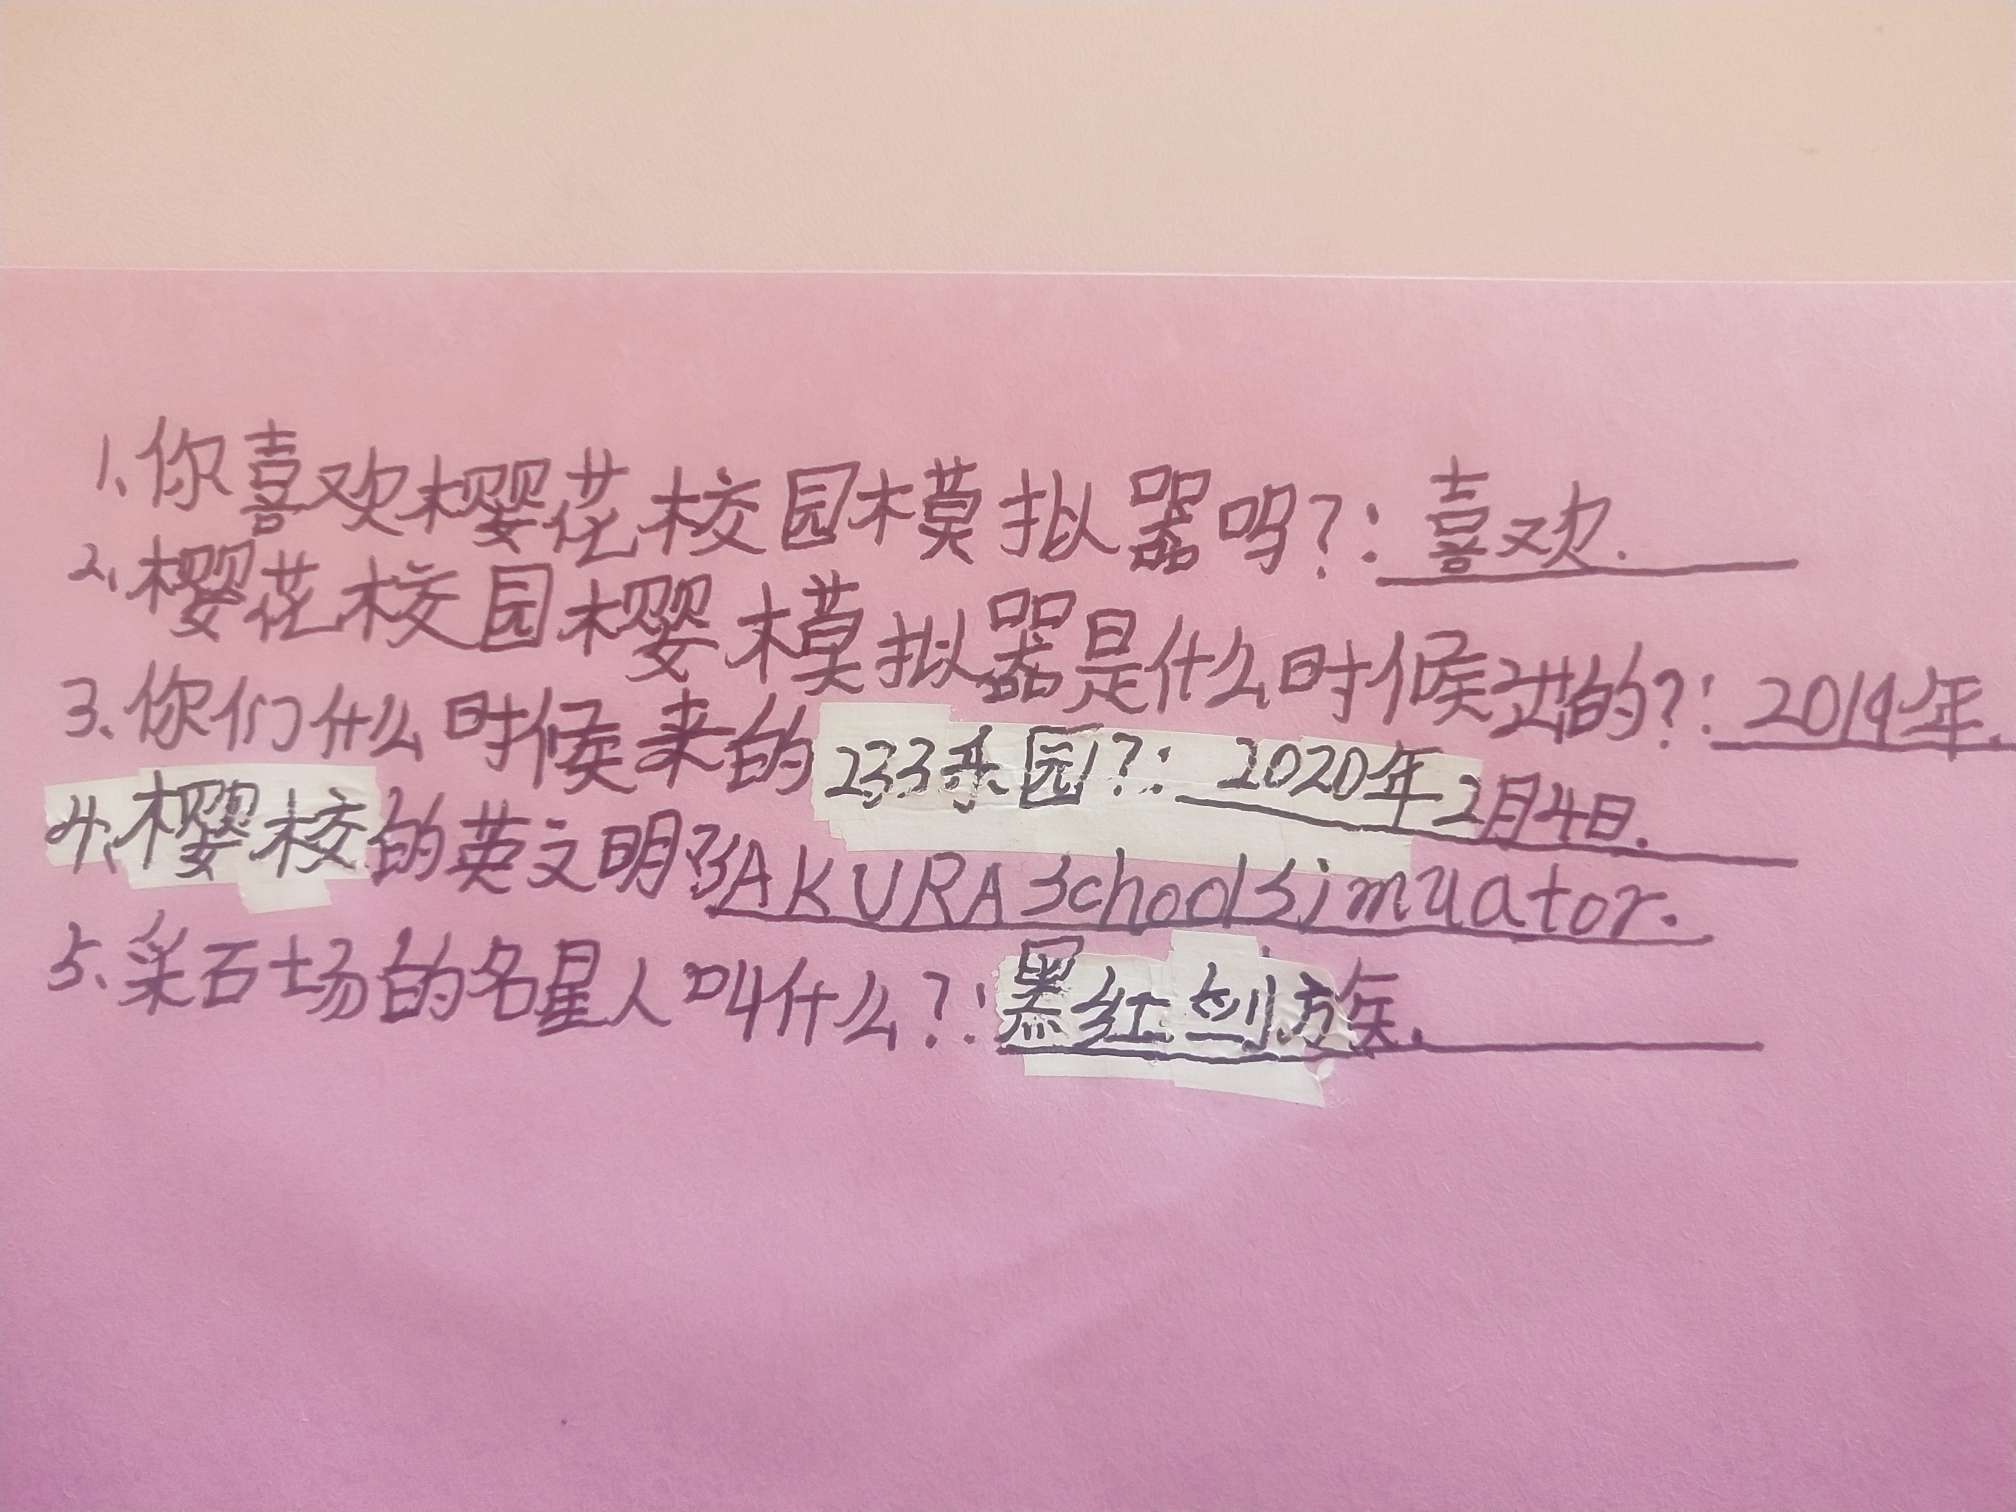 1、你喜欢樱花校园模拟器吗?:喜欢.
2、樱花校园樱模拟器是什么时候进的?:2019年.
3、你们什么时候来的233乐园?:2020年2月4日.
4、樱校的英文明?SAKURASchoolSimuator.
5、采石场的名星人叫什么?:黑红刽族.